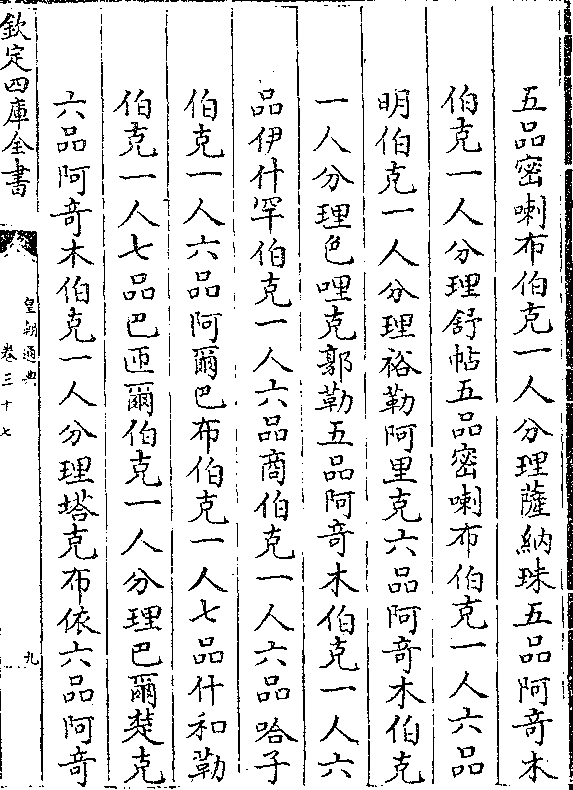 五品密喇布伯克一人分理薩納珠五品阿奇木
伯克一人分理舒帖五品密喇布伯克一人六品
明伯克一人分理裕勒阿里克六品阿奇木伯克
一人分理色哩克郭勒五品阿奇木伯克一人六
品伊什罕伯克一人六品商伯克一人六品哈子
伯克一人六品阿爾巴布伯克一人七品什和勒
伯克一人七品巴匝爾伯克一人分理巴爾楚克
六品阿奇木伯克一人分理塔克布依六品阿奇
欽定四庫全書
皇朝通典
卷三十七
九